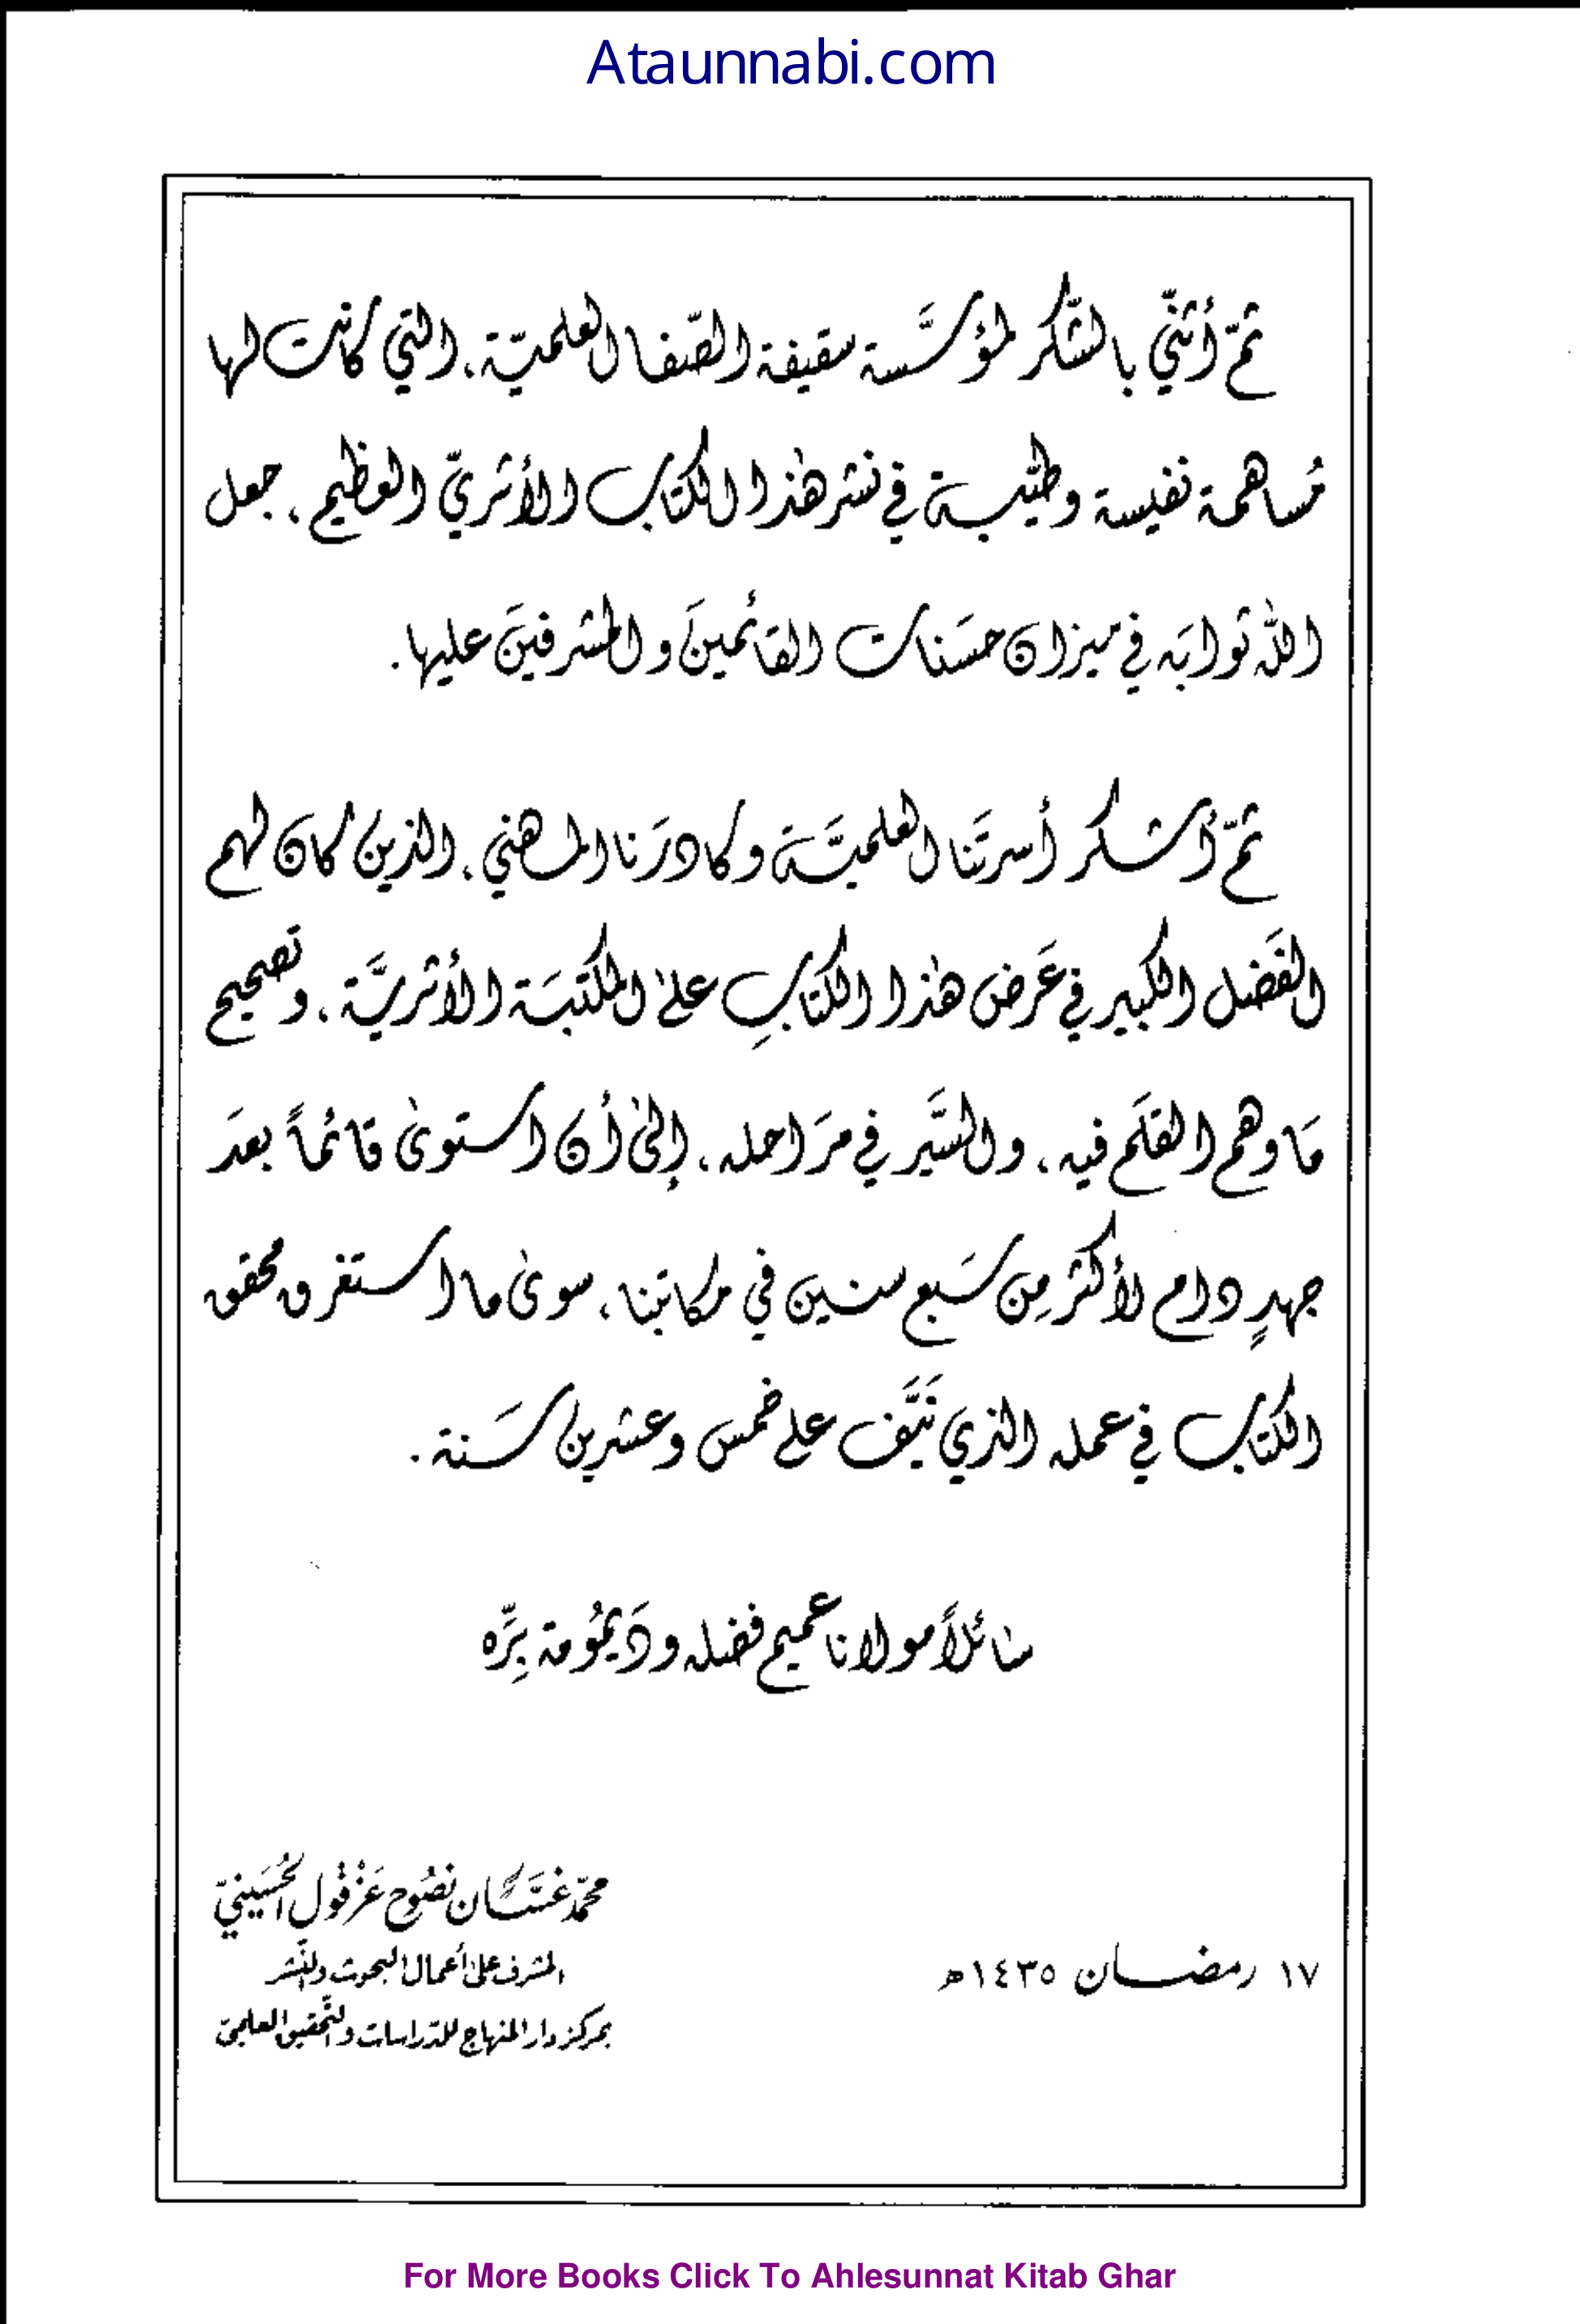 Ataunnabi.com
ثمّ أثنّي بالشّكر لمؤسَّسة سقيفة الصّفا العلميّة، التي كانت لها
مُساهمة نفيسة وطيّبة في نشر هٰذا الكتاب الأثريّ العظيم، جعل
اللّٰه ثوابَه في ميزان حسَنات القَائمينَ والمشرفينَ عليها.
ثمّ أشكر أسرتَنا العلميَّة وكادرَنا المهني، الذين كان لهم
الفَضل الكبير في عَرض هٰذا الكتابِ علىٰ المكتبَة الأثريَّة، وتصحيح
مَا وهم القلَم فيه، والسَّير في مرَاحله، إلىٰ أن استوىٰ قائماً بعدَ
جهدٍ دام لأكثر مِن سَبع سنين في مكاتبنا، سوىٰ ما استغرق محقق
الكتاب في عمله الذي نَيَّف على خمس وعشرين سَنة.
سائلاً مولانا عميم فضله ودَيمُومة بِرِّه
محمّد غسَّان نصُوح عَزْقُول الحُسَينيّ
المشرف علىٰ أعمال البحوث والنّشر
بمركز دار المنهاج للدّراسات والتّحقيق العلميّ
١٧ رمضان ١٤٣٥هـ
For More Books Click To Ahlesunnat Kitab Ghar